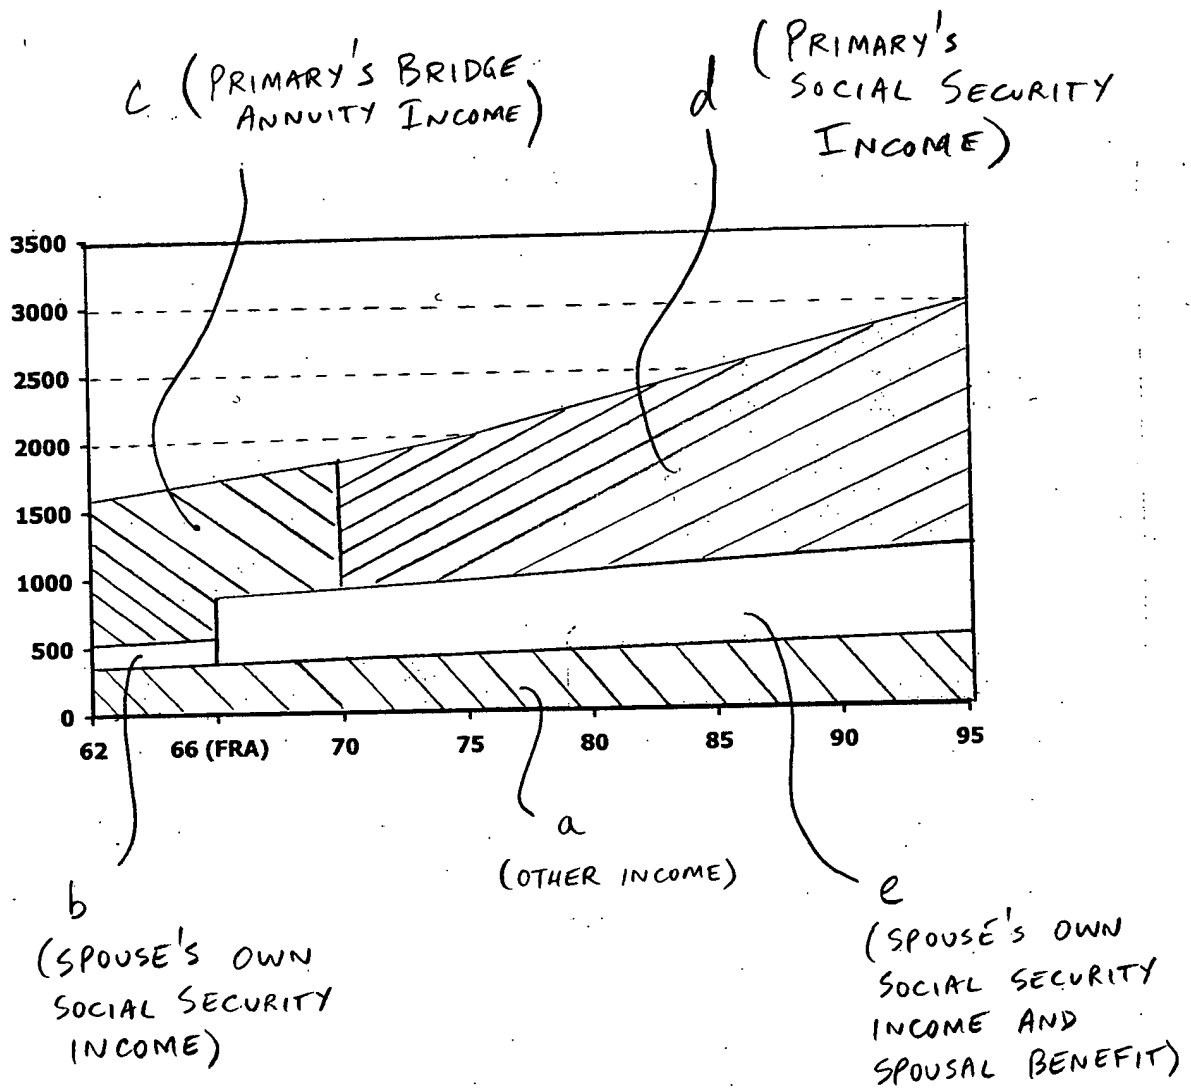 c (PRIMARY'S BRIDGE
ANNUITY INCOME)
d (PRIMARY'S
SOCIAL SECURITY
INCOME)
3500
3000
2500
2000
1500
1000
500
0
62
66 (FRA)
70
75
80
85
90
95
a
(OTHER INCOME)
b
(SPOUSE'S OWN
SOCIAL SECURITY
INCOME)
e
(SPOUSE'S OWN
SOCIAL SECURITY
INCOME AND
SPOUSAL BENEFIT)